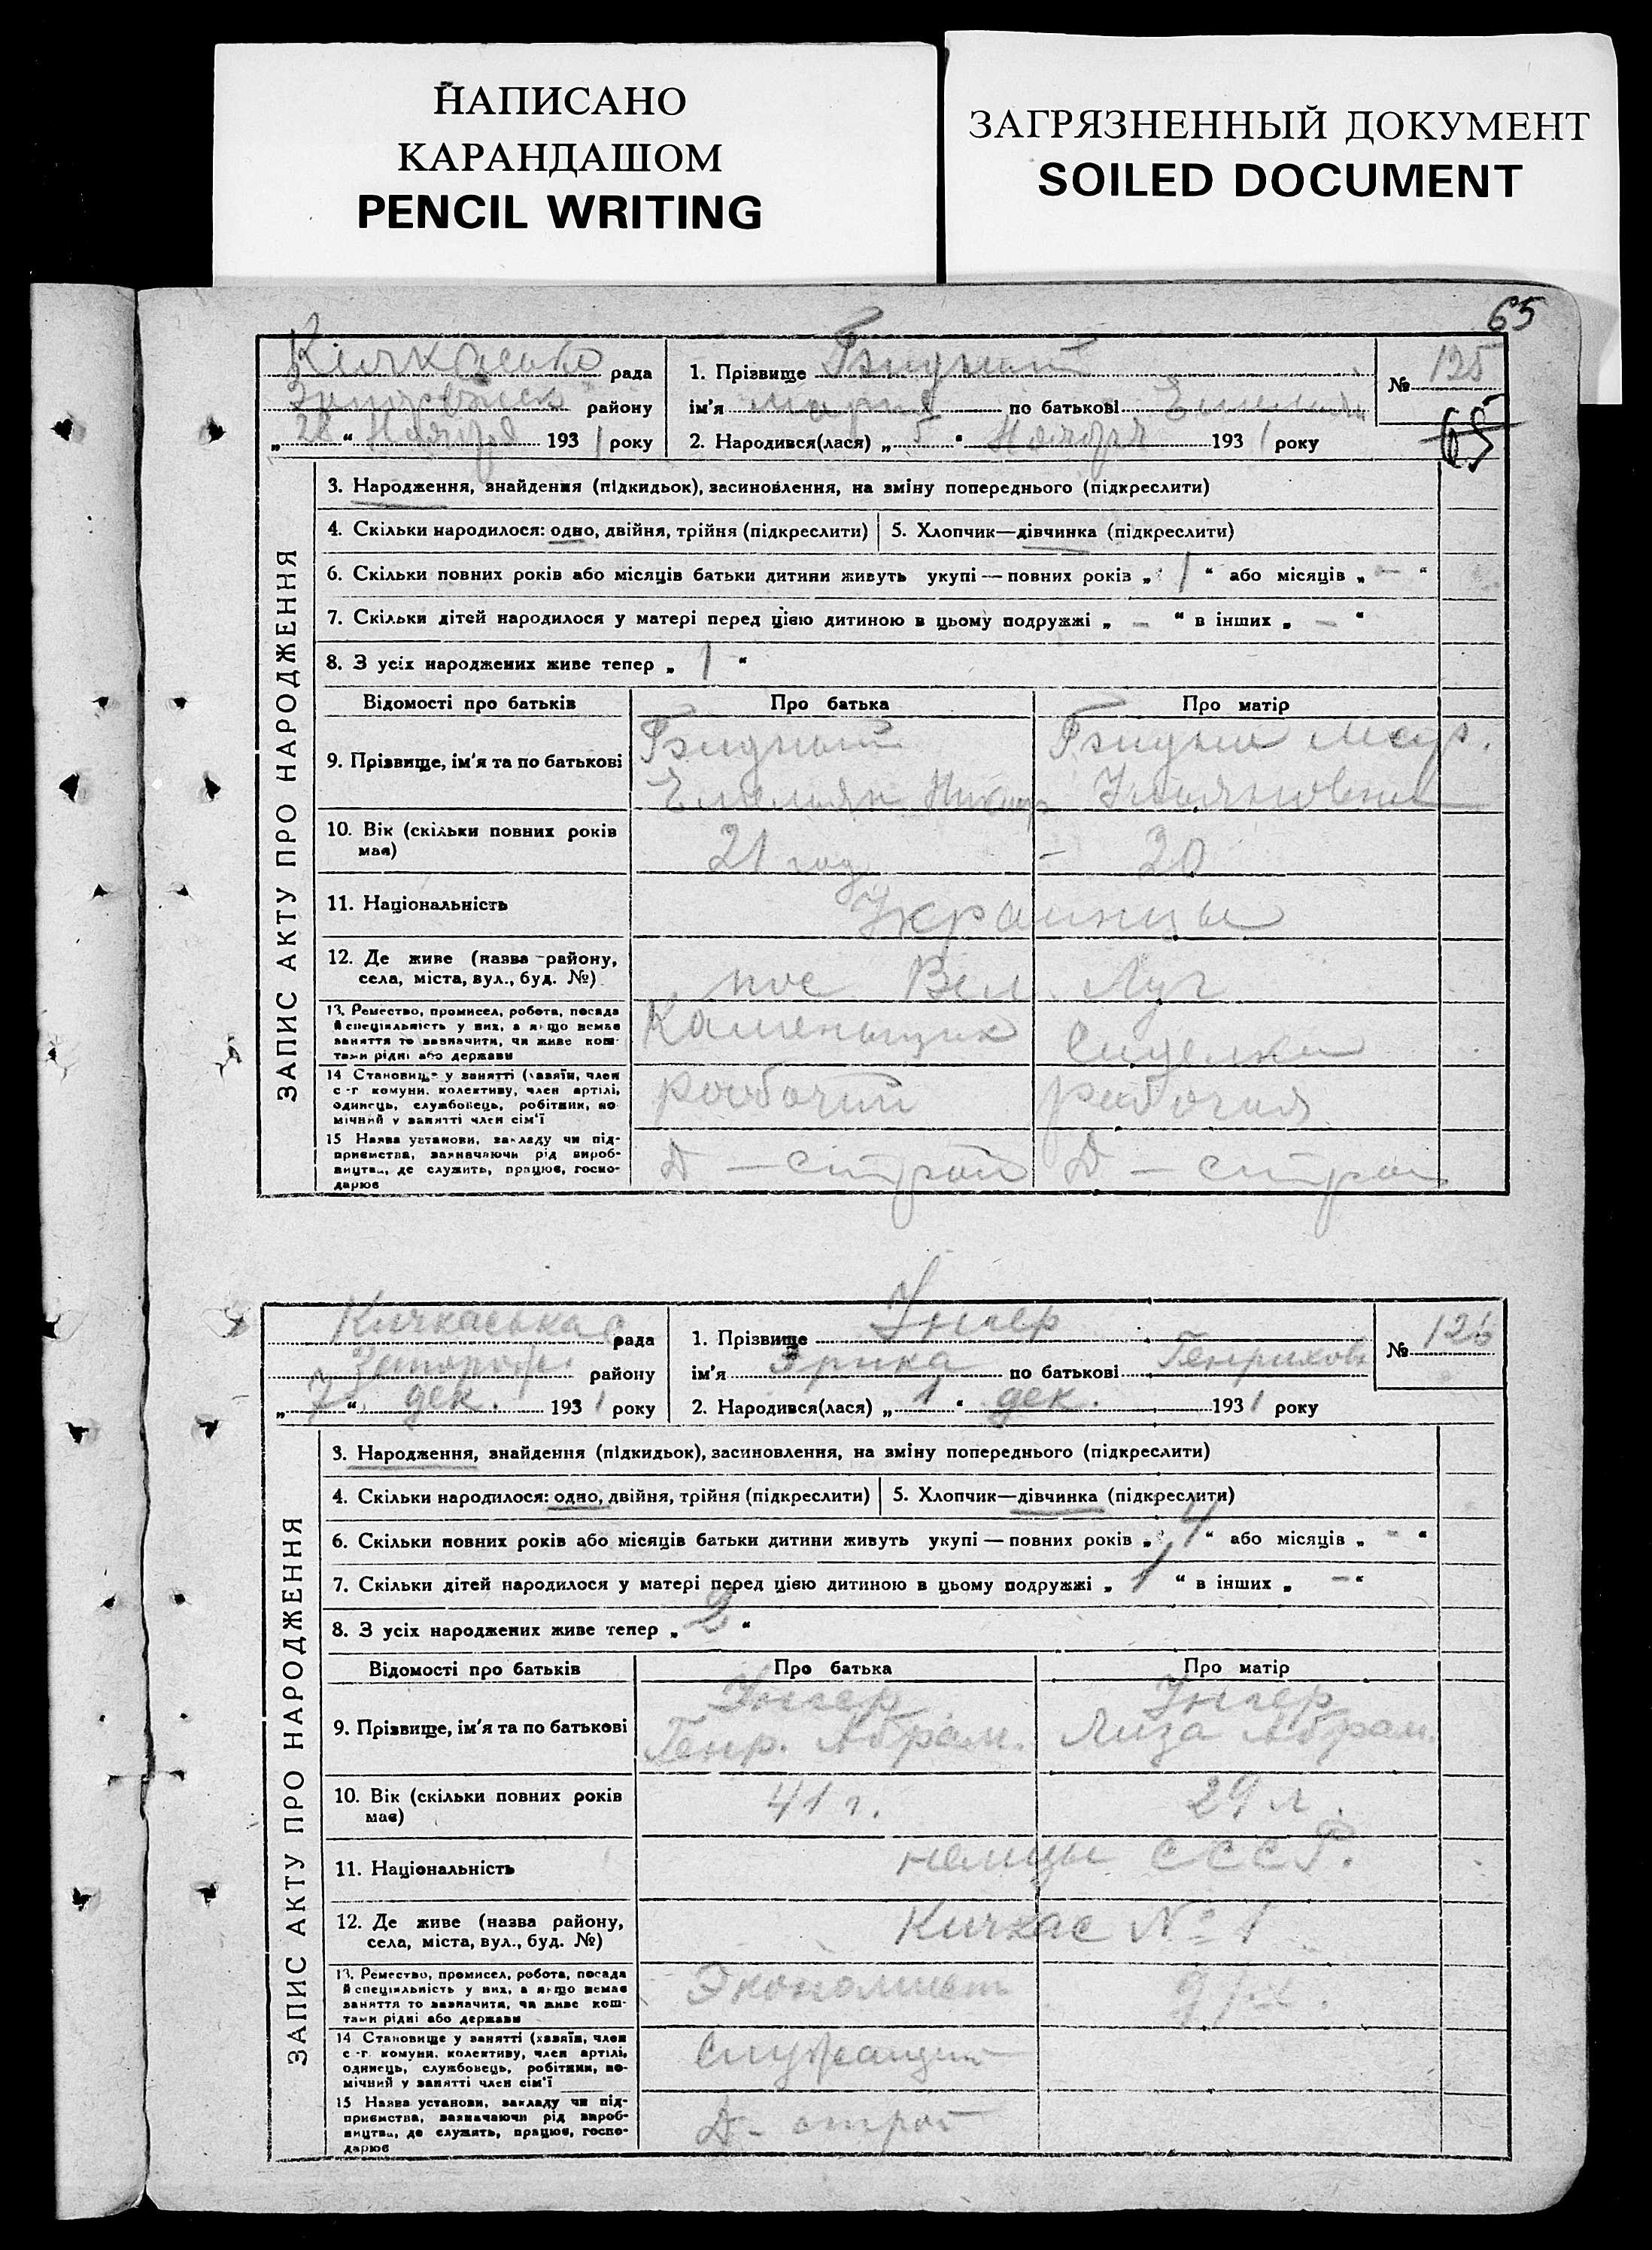 НАПИСАНО
КАРАНДАШОМ
PENCIL WRITING
ЗАГРЯЗНЕННЫЙ ДОКУМЕНТ
SOILED DOCUMENT
65
рада
району
„ 28 “ Ноября 1931 року
1. Прізвище
ім'я Мария по батькові
2. Народився(лася) „ 5 “ Ноября 1931 року
№ 125
65
ЗАПИС АКТУ ПРО НАРОДЖЕННЯ
3. Народження, знайдення (підкидьок), засиновлення, на зміну попереднього (підкреслити)
4. Скільки народилося: одно, двійня, трійня (підкреслити)
5. Хлопчик—дівчинка (підкреслити)
6. Скільки повних років або місяців батьки дитини живуть укупі — повних років „ 1 “ або місяців „ — “
7. Скільки дітей народилося у матері перед цією дитиною в цьому подружжі „ — “ в інших „ — “
8. З усіх народжених живе тепер „ 1 “
Відомості про батьків
Про батька
Про матір
9. Прізвище, ім'я та по батькові
Емельян
10. Вік (скільки повних років має)
21 год
20
11. Національність
Украинцы
12. Де живе (назва району,
села, міста, вул., буд. №)
пос Вел Луг
13. Ремество, промисел, робота, посада
й спеціяльність у них, а якщо немає
заняття то зазначити, чи живе кош-
тами рідні або держави
Каменьщик
Сиделка
14 Становище у занятті (хазяїн, член
с-г. комуни, колективу, член артілі,
одинець, службовець, робітник, по-
мічний у занятті член сім'ї
рабочий
рабочая
15 Назва установи, закладу чи під-
приємства, зазначаючи рід вироб-
ництва, де служить, працює, госпо-
дарює
Д — строй
Д — строй
Кичкаська рада
Запорож. району
„ 7 “ дек. 1931 року
1. Прізвище Унгер
ім'я Эрика по батькові Генрихов
2. Народився(лася) „ 1 “ дек. 1931 року
№ 126
ЗАПИС АКТУ ПРО НАРОДЖЕННЯ
3. Народження, знайдення (підкидьок), засиновлення, на зміну попереднього (підкреслити)
4. Скільки народилося: одно, двійня, трійня (підкреслити)
5. Хлопчик—дівчинка (підкреслити)
6. Скільки повних років або місяців батьки дитини живуть укупі — повних років „ 4 “ або місяців „ - “
7. Скільки дітей народилося у матері перед цією дитиною в цьому подружжі „ 1 “ в інших „ — “
8. З усіх народжених живе тепер „ 2 “
Відомості про батьків
Про батька
Про матір
9. Прізвище, ім'я та по батькові
Унгер
Генр. Абрам.
Унгер
Лиза Абрам.
10. Вік (скільки повних років
має)
41 г.
29 л.
11. Національність
немцы СССР.
12. Де живе (назва району,
села, міста, вул., буд. №)
Кичкас № 1
13. Ремество, промисел, робота, посада
й спеціяльність у них, а якщо немає
заняття то зазначити, чи живе кош-
тами рідні або держави
Экономист
14 Становище у занятті (хазяїн, член
с-г. комуни, колективу, член артілі,
одинець, службовець, робітник, по-
мічний у занятті член сім'ї
Служащий
15 Назва установи, закладу чи під-
приємства, зазначаючи рід вироб-
ництва, де служить, працює, госпо-
дарює
Д - строй